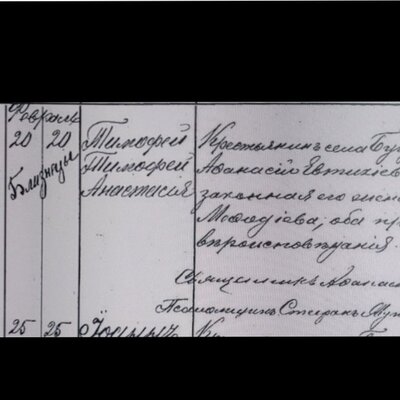 Февраль
20 20 Тимофей Крестьянинъ села Бу
Близнецы Тимофей Афанасій Евтихіев
Анастасія законная его жена
Меѳодіева, оба пр
вѣроисповѣданія.
Священникъ Афанас
Псаломщикъ Стефанъ
25 25